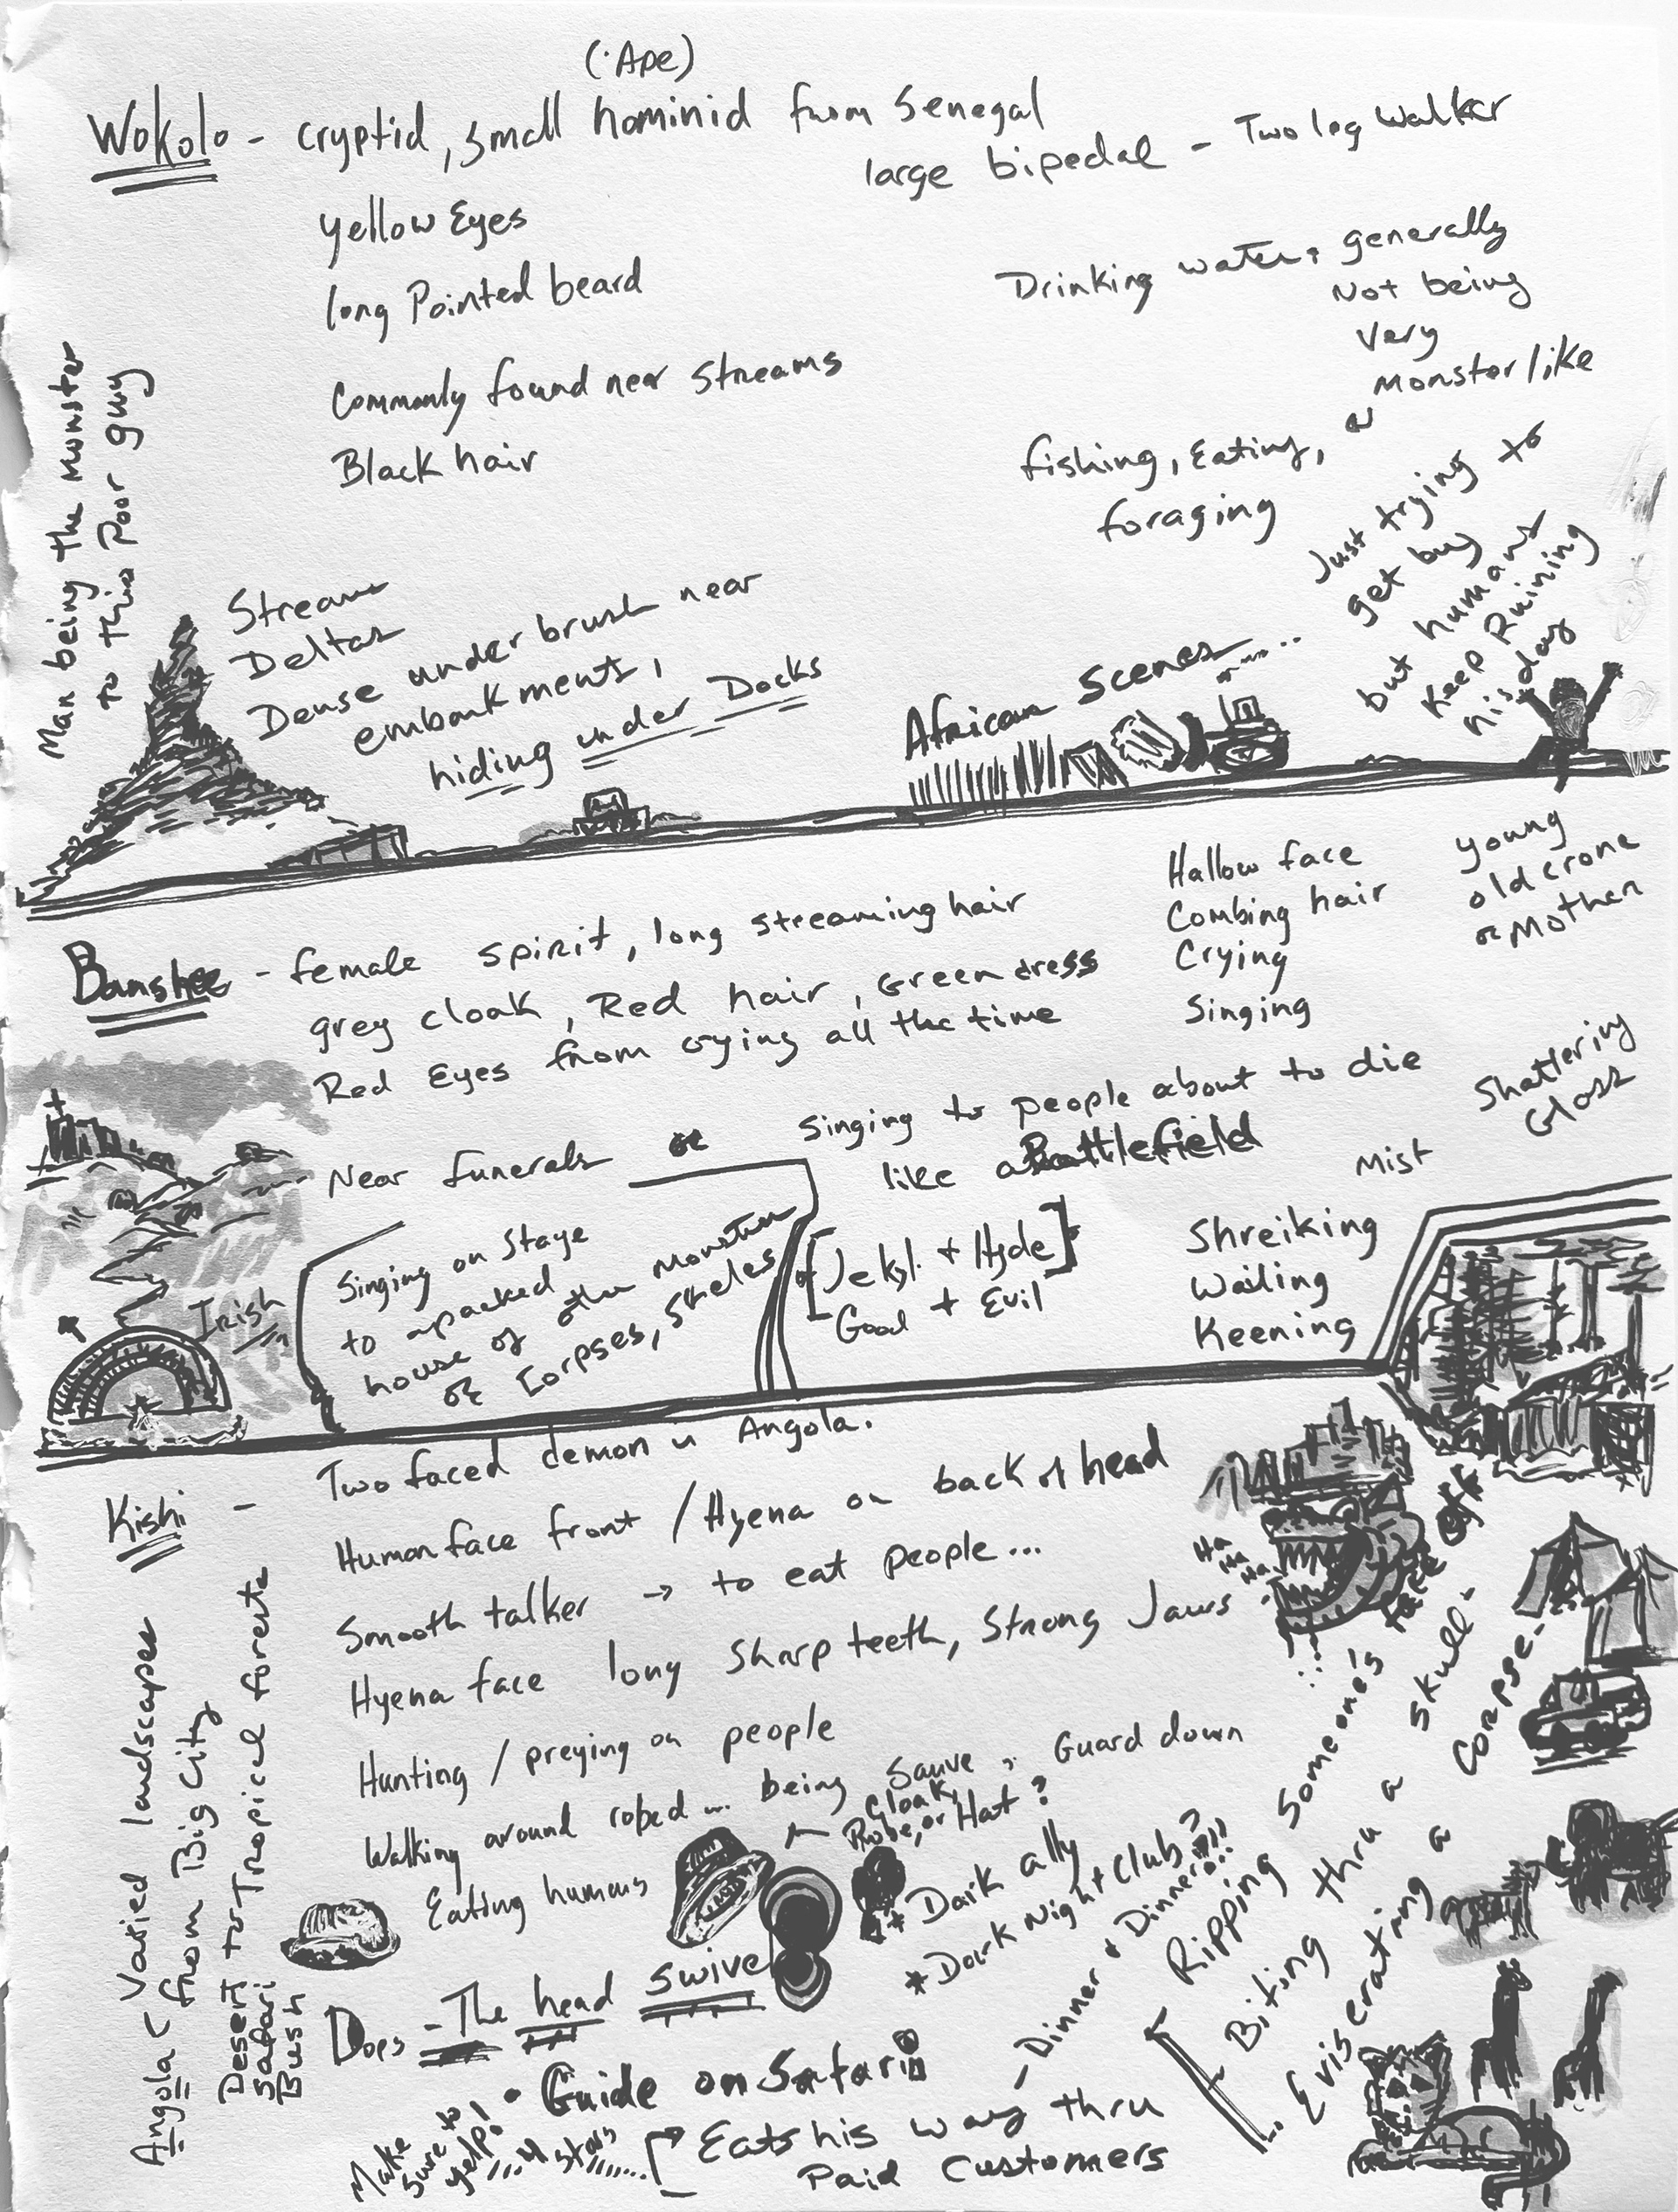 (Ape)
Wokolo - cryptid, small hominid from Senegal
large bipedal - Two leg walker
yellow Eyes
long Pointed beard
Commonly found near streams
Black hair
Drinking water, generally
Not being
very
monster like
fishing, Eating, or
foraging
Just trying to
get buy
but humans
keep Ruining
his day
Man being the Monster
to this Poor guy
Stream
Deltas
Dense underbrush near
embankments,
hiding under Docks
African Scenes...
Banshee - female spirit, long streaming hair
grey cloak, Red hair, Green dress
Red Eyes from crying all the time
Hallow face
Combing hair
Crying
Singing
young
old crone
or Mother
Near funerals or
Singing to people about to die
like a Battlefield
Shattering
Glass
Mist
Singing on Stage
to a packed
house of other Monsters
or Corpses, Skeles
of
[Jekyl + Hyde]
Good + Evil
Shreiking
Wailing
Keening
Irish
Kishi - Two faced demon in Angola.
Human face front / Hyena on back of head
Smooth talker → to eat people...
Hyena face long sharp teeth, Strong Jaws
Hunting / preying on people
Walking around robed... being Sauve, Guard down
Eating humans
Cloak,
Robe, or Hat?
Ha
Ha
Ha
Angola ( Varied landscapes
from Big City
Desert to Tropical forests
Safari
Bush
Does - The head swivel
* Dark ally
* Dark Night Club???
- Dinner & Dinner!!
Ripping someone's face off
Biting thru a skull-
Eviscerating a corpse-
• Guide on Safari
Eats his way thru
Paid Customers
Make
sure to
yelp!
...4 stars